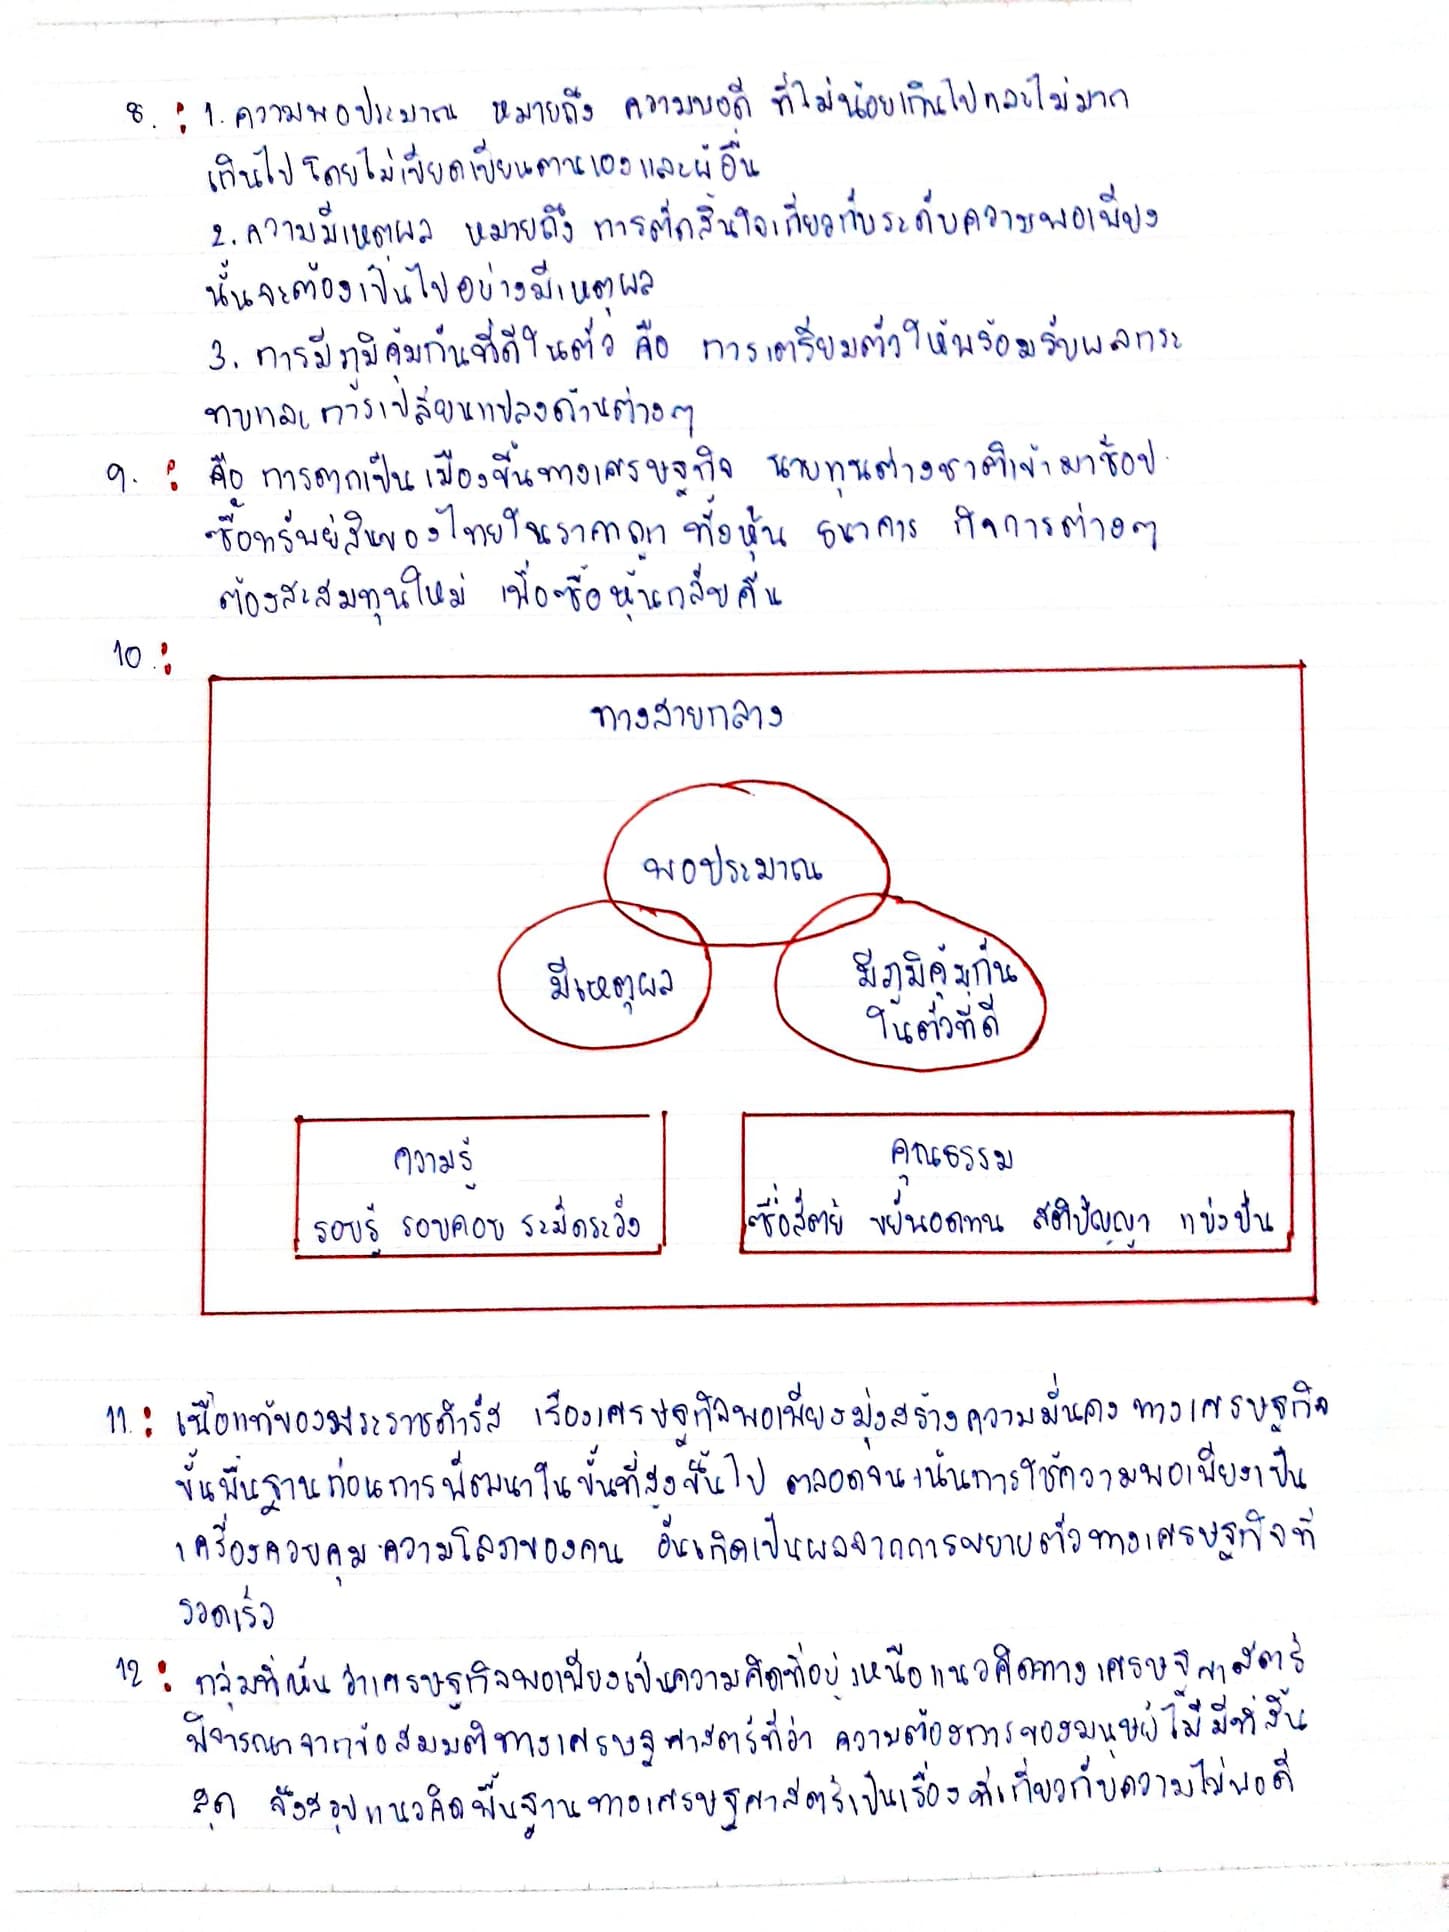 8. : 1. ความพอประมาณ หมายถึง ความพอดี ที่ไม่น้อยเกินไปและไม่มาก
เกินไป โดยไม่เบียดเบียนตนเองและผู้อื่น
2. ความมีเหตุผล หมายถึง การตัดสินใจเกี่ยวกับระดับความพอเพียง
นั้นจะต้องเป็นไปอย่างมีเหตุผล
3. การมีภูมิคุ้มกันที่ดีในตัว คือ การเตรียมตัวให้พร้อมรับผลกระ
ทบและการเปลี่ยนแปลงด้านต่างๆ
9. : คือ การตกเป็นเมืองขึ้นทางเศรษฐกิจ นายทุนต่างชาติเข้ามาช็อป
ซื้อทรัพย์สินของไทยในราคาถูก ทั้งหุ้น ธนาคาร กิจการต่างๆ
ต้องสะสมทุนใหม่ เพื่อซื้อหุ้นกลับคืน
10. :
ทางสายกลาง
พอประมาณ
มีเหตุผล
มีภูมิคุ้มกัน
ในตัวที่ดี
ความรู้
รอบรู้ รอบคอบ ระมัดระวัง
คุณธรรม
ซื่อสัตย์ ขยันอดทน สติปัญญา แบ่งปัน
11. : เนื้อแท้ของพระราชดำรัส เรื่องเศรษฐกิจพอเพียงมุ่งสร้างความมั่นคงทางเศรษฐกิจ
ขั้นพื้นฐานก่อนการพัฒนาในขั้นที่สูงขึ้นไป ตลอดจนเน้นการใช้ความพอเพียงเป็น
เครื่องควบคุมความโลภของคน อันเกิดเป็นผลจากการขยายตัวทางเศรษฐกิจที่
รวดเร็ว
12. : กลุ่มที่เห็นว่าเศรษฐกิจพอเพียงเป็นความคิดที่อยู่เหนือแนวคิดทางเศรษฐศาสตร์
พิจารณาจากข้อสมมติทางเศรษฐศาสตร์ที่ว่า ความต้องการของมนุษย์ไม่มีที่สิ้น
สุด จึงสรุปแนวคิดพื้นฐานทางเศรษฐศาสตร์เป็นเรื่องที่เกี่ยวกับความไม่พอดี